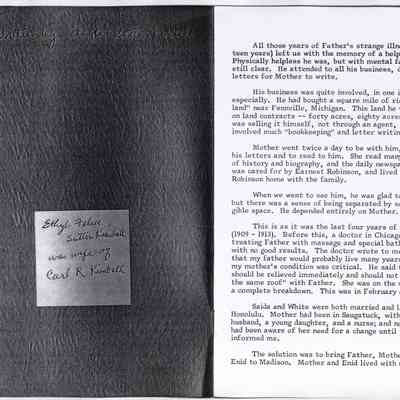 Ethyl Felice
Sutton Kimbell
was wife of
Carl R Kimbell
All those years of Father's strange illn
teen years) left us with the memory of a help
Physically helpless he was, but with mental fa
still clear. He attended to all his business, d
letters for Mother to write.
His business was quite involved, in one i
especially. He had bought a square mile of ric
land" near Fennville, Michigan. This land he w
on land contracts -- forty acres, eighty acres
was selling it himself, not through an agent,
involved much "bookkeeping" and letter writing
Mother went twice a day to be with him,
his letters and to read to him. She read many
of history and biography, and the daily newspa
was cared for by Earnest Robinson, and lived
Robinson home with the family.
When we went to see him, he was glad to
but there was a sense of being separated by so
gible space. He depended entirely on Mother.
This is as it was the last four years of
(1909 - 1913). Before this, a doctor in Chicago
treating Father with massage and special bath
with no good results. The doctor wrote to me
that my father would probably live many years
my mother's condition was critical. He said t
should be relieved immediately and should not
the same roof" with Father. She was on the v
a complete breakdown. This was in February o
Saida and White were both married and l
Honolulu. Mother had been in Saugatuck, with
husband, a young daughter, and a nurse; and no
had been aware of her need for a change until
informed me.
The solution was to bring Father, Mothe
Enid to Madison. Mother and Enid lived with u